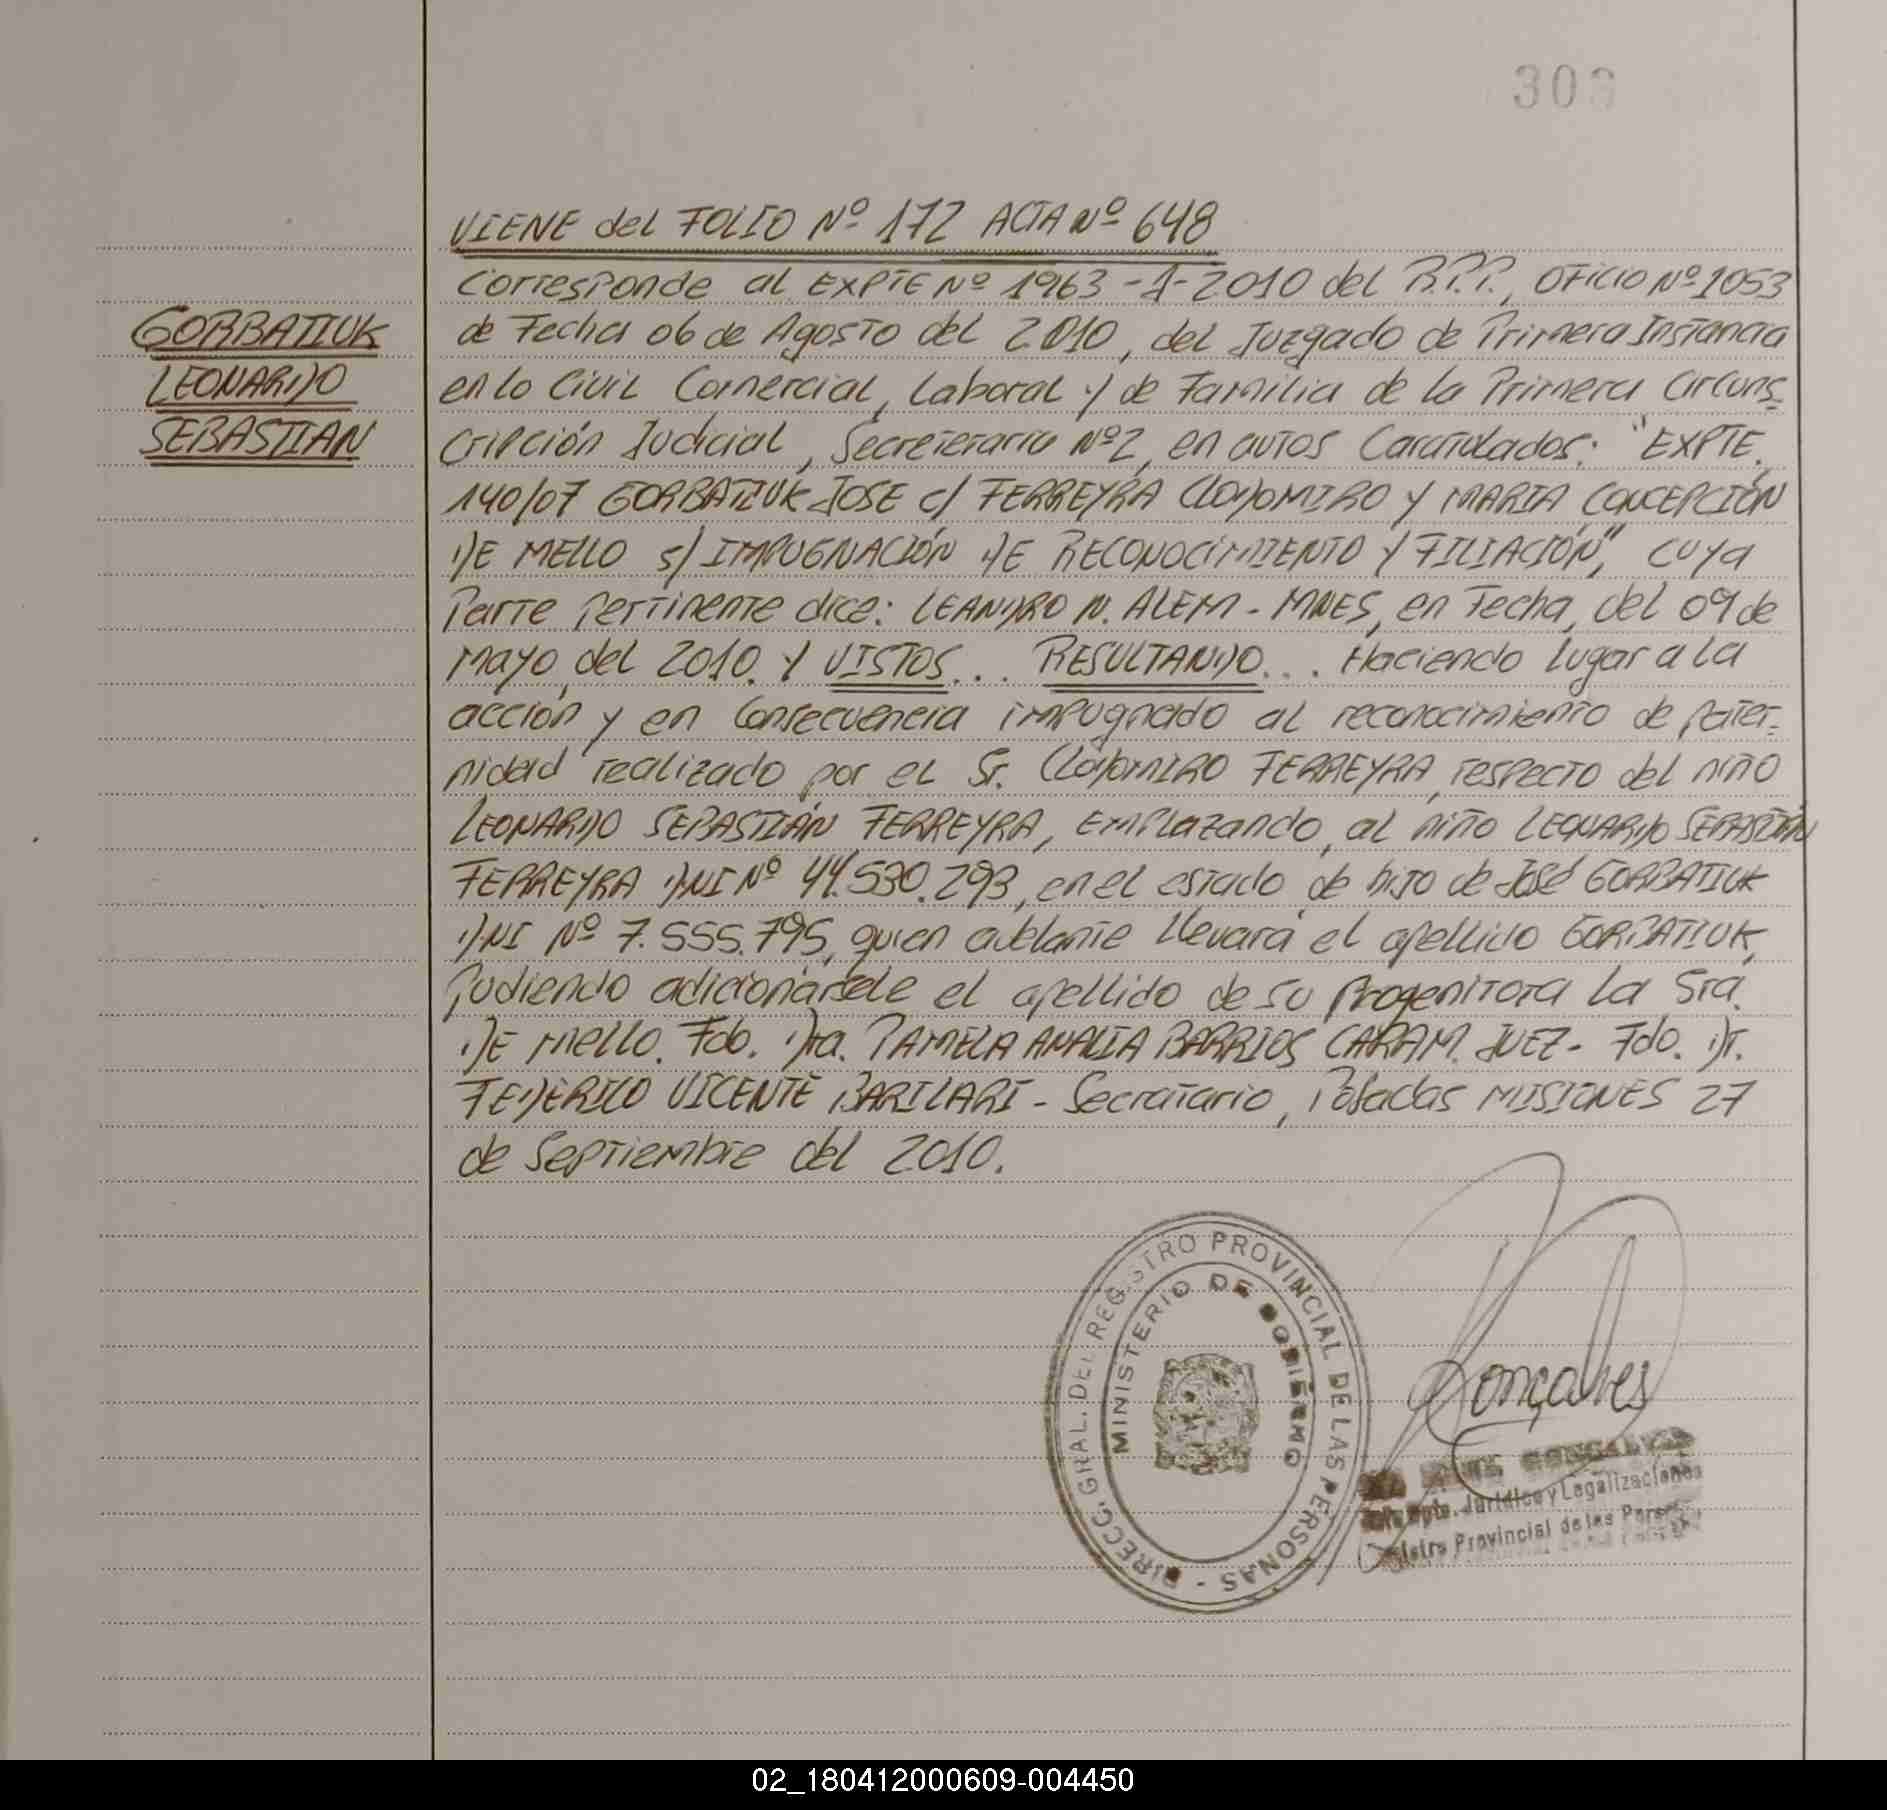 303
VIENE del FOLIO Nº 172 ACTA Nº 648
GORBATIUK
LEONARDO
SEBASTIAN
Corresponde al EXPTE Nº 1963-A-2010 del R.P.P., OFICIO Nº 1053
de Fecha 06 de Agosto del 2010, del Juzgado de Primera Instancia
en lo Civil Comercial, Laboral y de Familia de la Primera Circuns-
cripción Judicial, Secreterario Nº2, en autos Caratulados: "EXPTE.
140/07 GORBATIUK JOSE c/ FERREYRA CLODOMIRO Y MARIA CONCEPCIÓN
DE MELLO s/ IMPUGNACIÓN DE RECONOCIMIENTO Y FILIACIÓN", cuya
Parte Pertinente dice: LEANDRO N. ALEM - MNES, en Fecha, del 09 de
Mayo, del 2010. Y VISTOS... RESULTANDO... Haciendo lugar a la
acción y en Consecuencia impugnado al reconocimiento de pater-
nidad realizado por el Sr. CLODOMIRO FERREYRA, respecto del niño
LEONARDO SEBASTIÁN FERREYRA, EMPLAZANDO, al niño LEONARDO SEBASTIÁN
FERREYRA DNI Nº 44.530.293, en el estado de hijo de José GORBATIUK
DNI Nº 7.555.795, quien adelante llevará el apellido GORBATIUK,
Pudiendo adicionársele el apellido de su Progenitora La Sra.
DE Mello. Fdo. Dra. PAMELA ANALIA BARRIOS CARAM. JUEZ - Fdo. Dr.
FEDERICO VICENTE BARILARI - Secratario, Posadas MISIONES 27
de Septiembre del 2010.
DIRECC. GRAL. DEL REGISTRO PROVINCIAL DE LAS PERSONAS -
MINISTERIO DE GOBIERNO
Gonçalves
GONCALVES
Dpto. Jurídico y Legalizaciones
Provincial de las
02_180412000609-004450